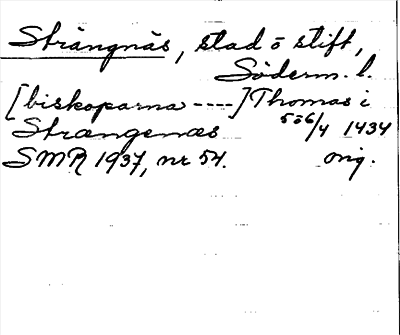 Strängnäs, stad o stift,
Söderm. l.
[biskoparna ----] Thomas i
Strængenæs 5 o 6/4 1434
SMR 1937, nr 54. orig.